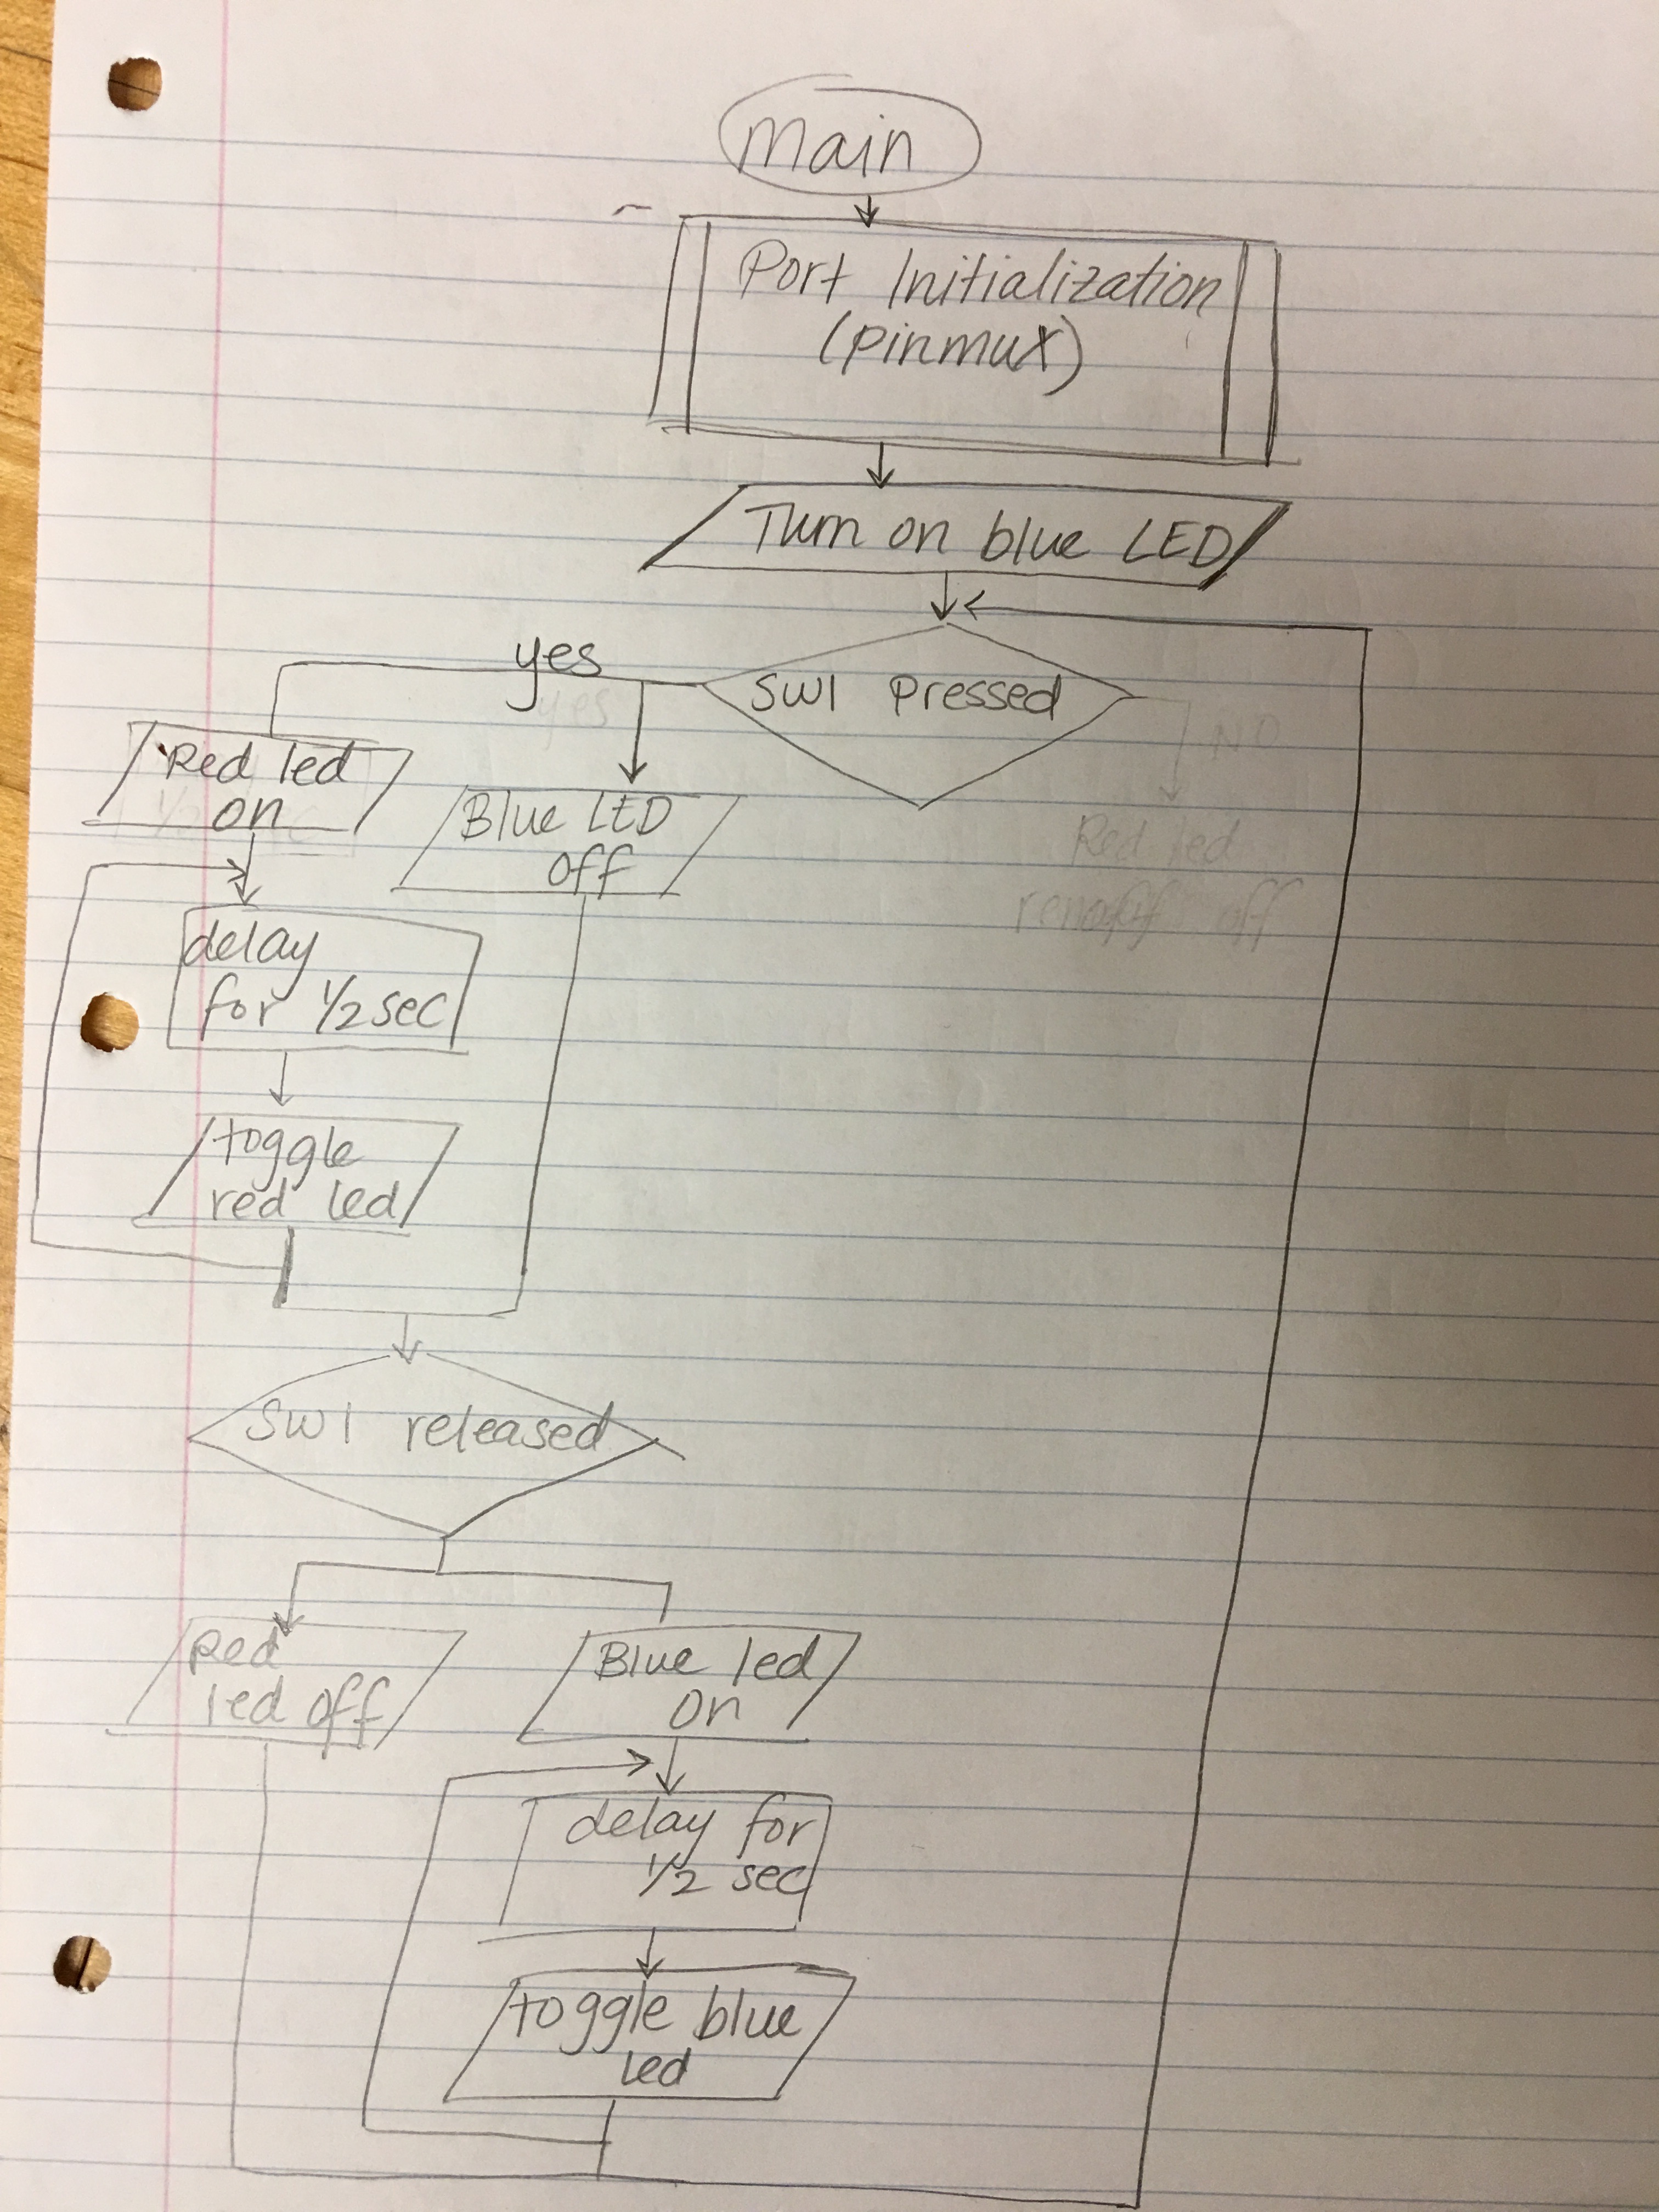 Main
Port Initialization
(pinmux)
Turn on blue LED
yes
SW1 Pressed
yes
NO
Red led
on
Blue LED
off
Red led
off
delay
for 1/2 sec
toggle
red led
SW1 released
Red
led off
Blue led
on
delay for
1/2 sec
toggle blue
led